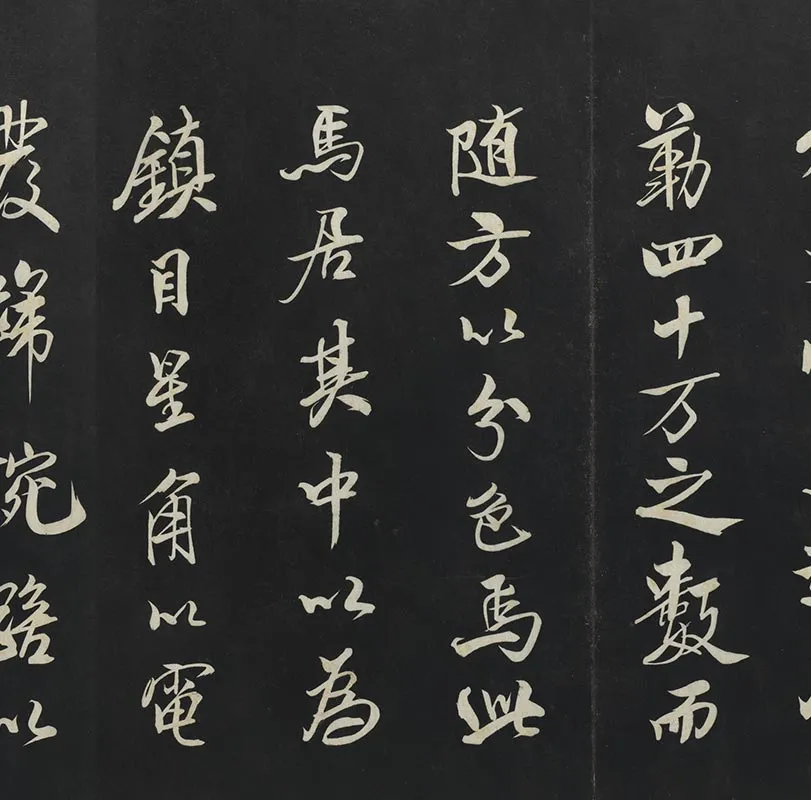 勒四十万之數而
随方以分色焉此
馬居其中以為
鎮目星角以電
發蹄踠踣以